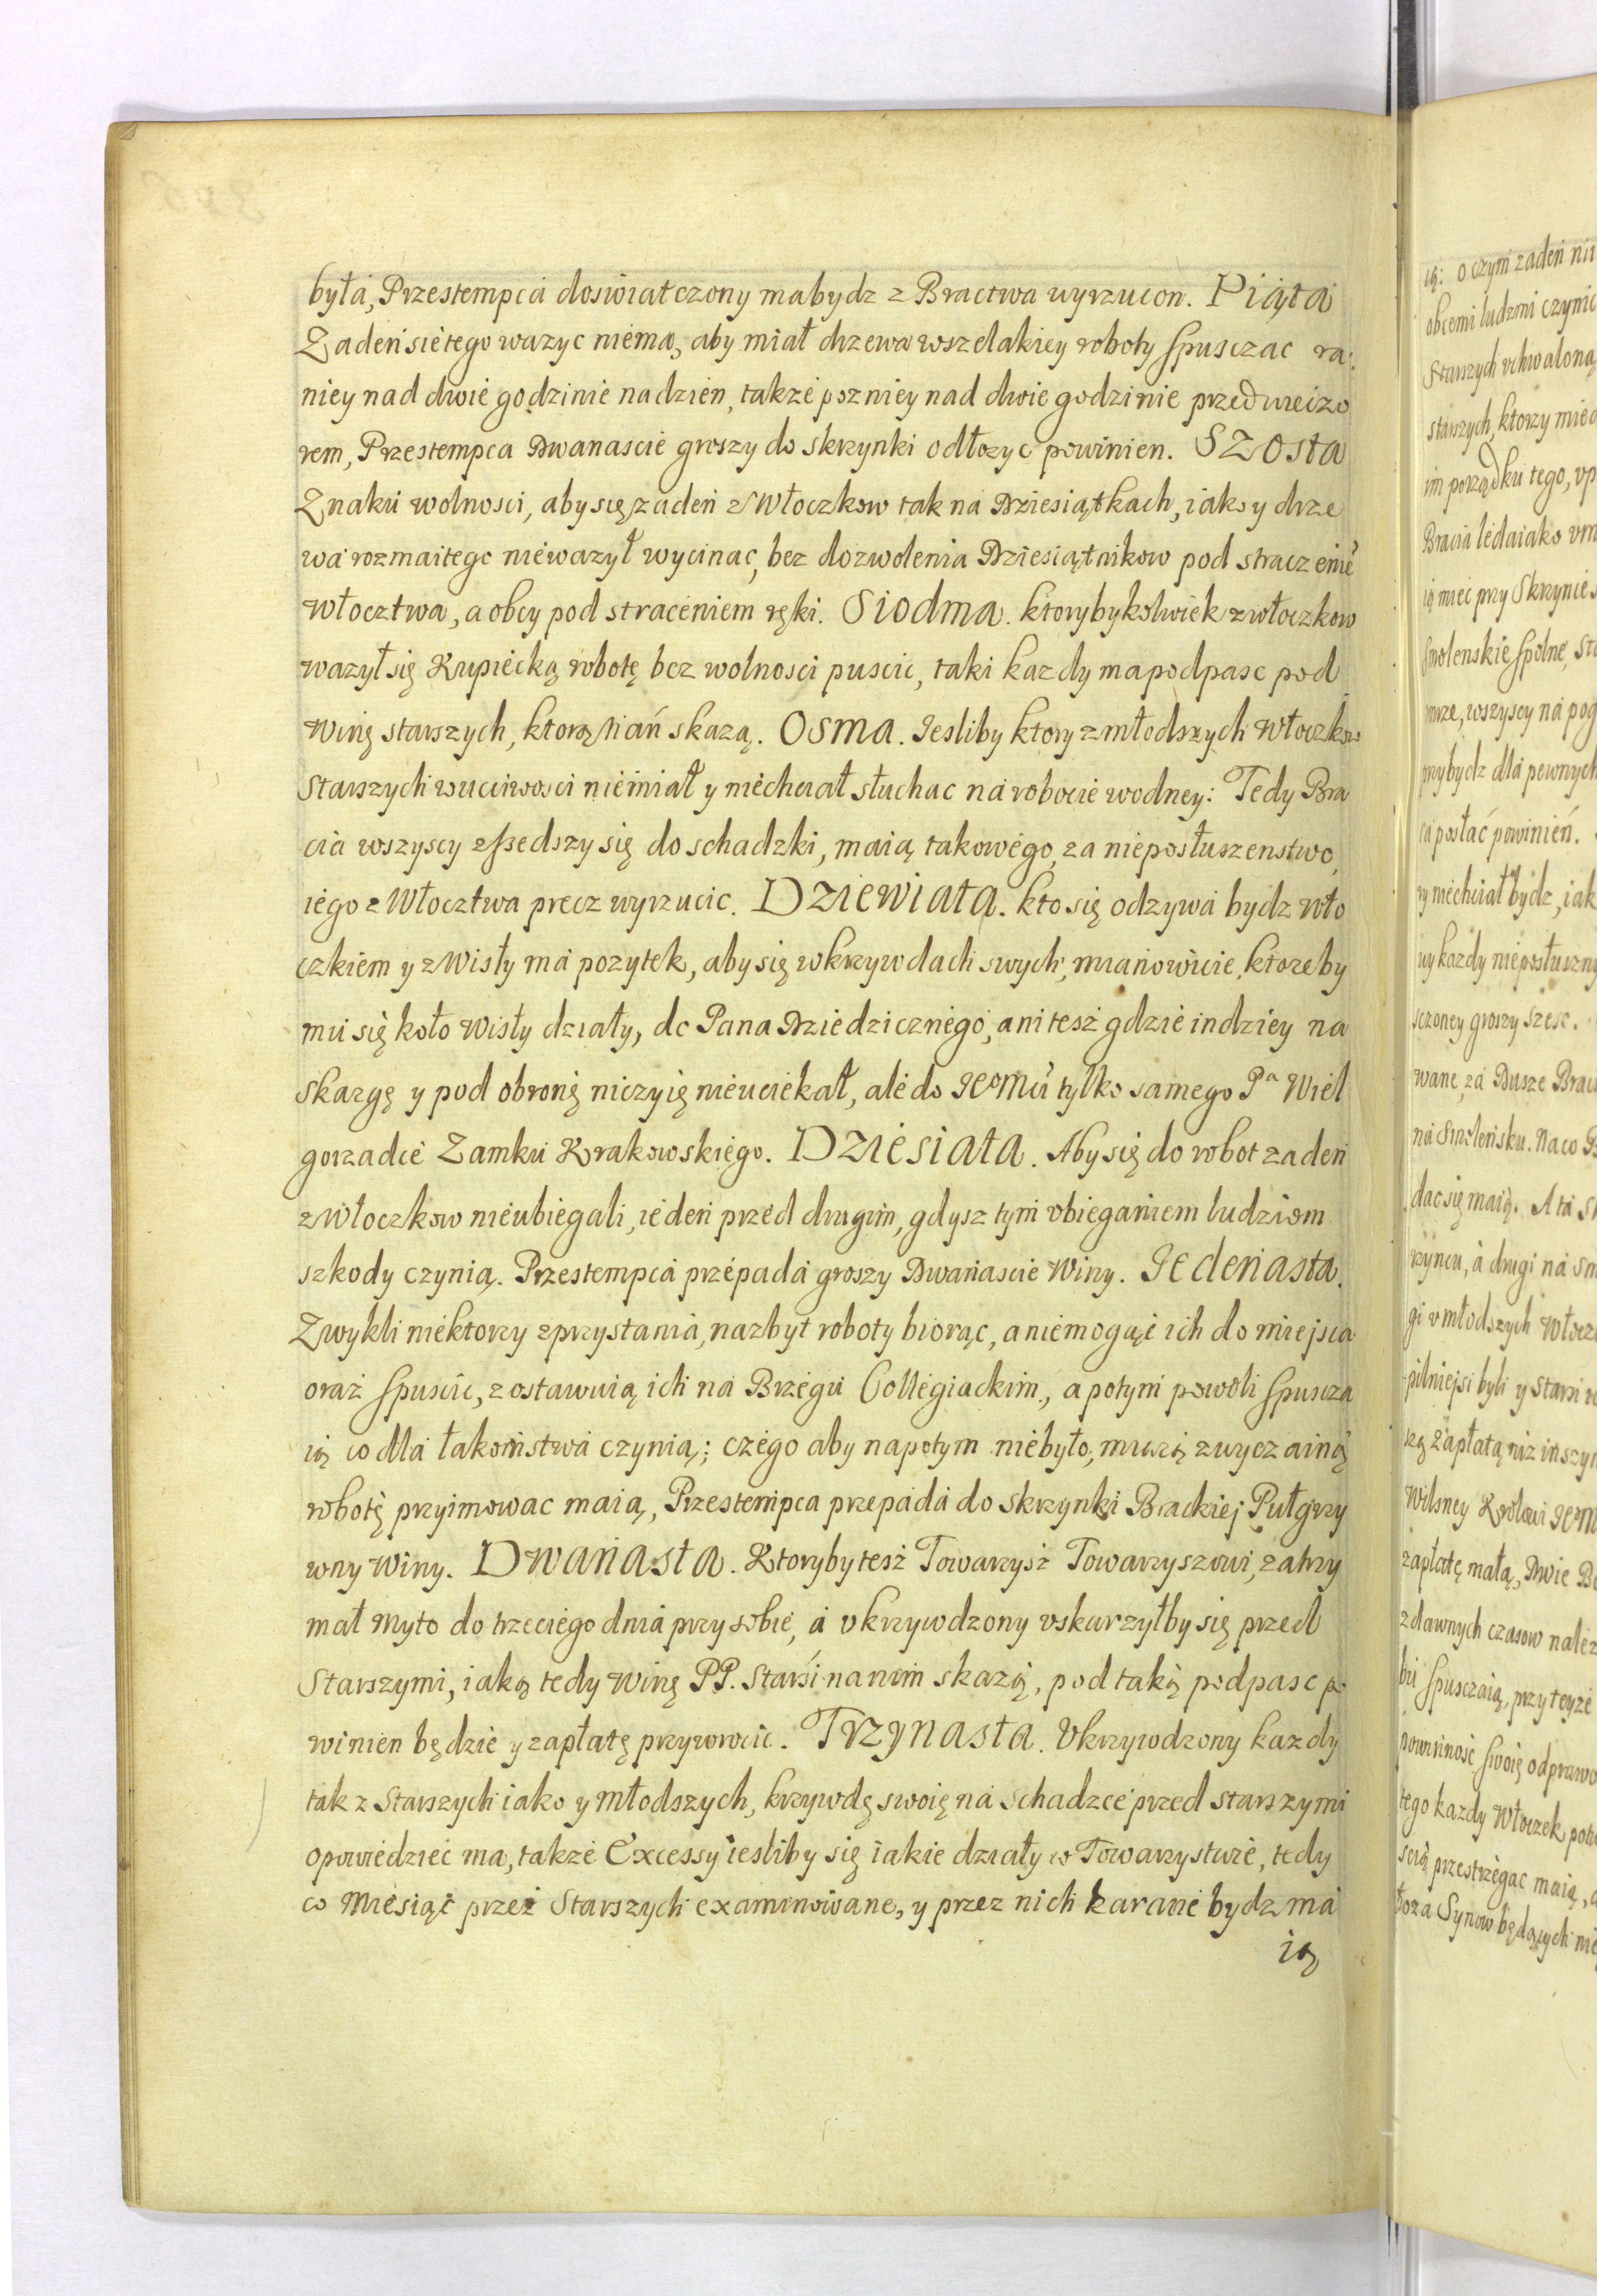 była, Przestempca doswiatczony mabydz z Bractwa wyrzucon. Piąta
Zadeń sie tego wazyc niema, aby miał drzewa wszelakiey roboty spusczac ra,
niey nad dwie godzinie na dzien, takze pozniey nad dwie godzinie przed wieczo
rem, Przestempca Dwanascie groszy do skrzynki odłozyc powinien. Szosta
Znaku wolnosci, aby się zaden z Włoczkow tak na Dziesiątkach, iako y drze
wa rozmaitego niewazył wycinac, bez dozwolenia Dziesiątnikow pod straczenie
Włocztwa, a obcy pod straceniem ręki. Siodma. ktorybykolwiek z włoczkow
wazył się Kupiecką robotę bez wolnosci puscic, taki kazdy ma podpasc pod
winę starszych, ktorą nań skazą. Osma. Iesliby ktory z młodszych Włoczkow
Starszych w ucciwosci niemiał y niechciał słuchac na robocie wodney: Tedy Bra
cia wszyscy zszedszy się do schadzki, maią takowego, za nieposłuszenstwo,
iego z Włocztwa precz wyrzucic. Dziewiata. kto się odzywa bydz wło
czkiem y z Wisły ma pozytek, aby się w krzywdach swych, mianowicie, ktoreby
mu się koło Wisły działy, do Pana Dziedzicznego, ani tesz gdzie indziey na
skargę y pod obronę niczyię nieuciekał, ale do Ieomu tylko samego Pa Wiel
gorzadce Zamku Krakowskiego. Dziesiata. Aby się do robot zaden
z Włoczkow nieubiegali, ieden przed drugim, gdysz tym vbieganiem ludziom
szkody czynią. Przestempca przepada groszy Dwanascie Winy. Iedenasta.
Zwykli niektorzy z przystania, nazbyt roboty biorąc, a niemogąc ich do miejsca
oraz spuscic, zostawuią ich na Brzegu Collegiackim, a potym powoli spuscza
ią co dla łakomstwa czynią; czego aby napotym niebyło, zwyczainą
robotę przyimowac maią, Przestempca przepada do skrzynki Brackiej Pułgrzy
wny Winy. Dwanasta. Ktoryby tesz Towarzysz Towarzyszowi, zatrzy
mał Myto do trzeciego dnia przy sobie, a vkrzywdzony vskarzyłby się przed
Starszymi, iaką tedy winę PP. Starsi na nim skazą, pod taką podpasc po
winien będzie y zapłatę przywrocic. Trzynasta. Vkrzywdzony kazdy
tak z Starszych iako y Młodszych, krzywdę swoię na schadzce przed starszymi
opowiedziec ma, takze Excessy iesliby się iakie działy w Towarzystwie, tedy
co Miesiąc przez Starszych examinowane, y przez nich karane bydz ma
ią
ią: o czym zaden nie
obcemi ludzmi czynic
Starszych vchwaloną
starszych, ktorzy miec
im porządku tego, vp
Bracia ledaiako vm
ią miec przy Skrzynie
Smolenskie spolne, sta
wszyscy na pog
przybydz dla pewnych
posłać powinień.
niechciał bydz, iak
kazdy nieposłuszny
sczoney groszy szesc.
wane, za Dusze Brac
na Smoleńsku. Na co
dac się maią. A ta
a drugi na Sm
gi v młodszych Włocz
pilniejsi byli y Starsi
zapłatą niz inszym
Krolowi Ieom
zapłatę małą, Dwie
z dawnych czasow nalez
spusczaią, przy teyze
powinnosc swoię odprawo
tego kazdy Włoczek
przestrzegac maią,
Synow będących nie